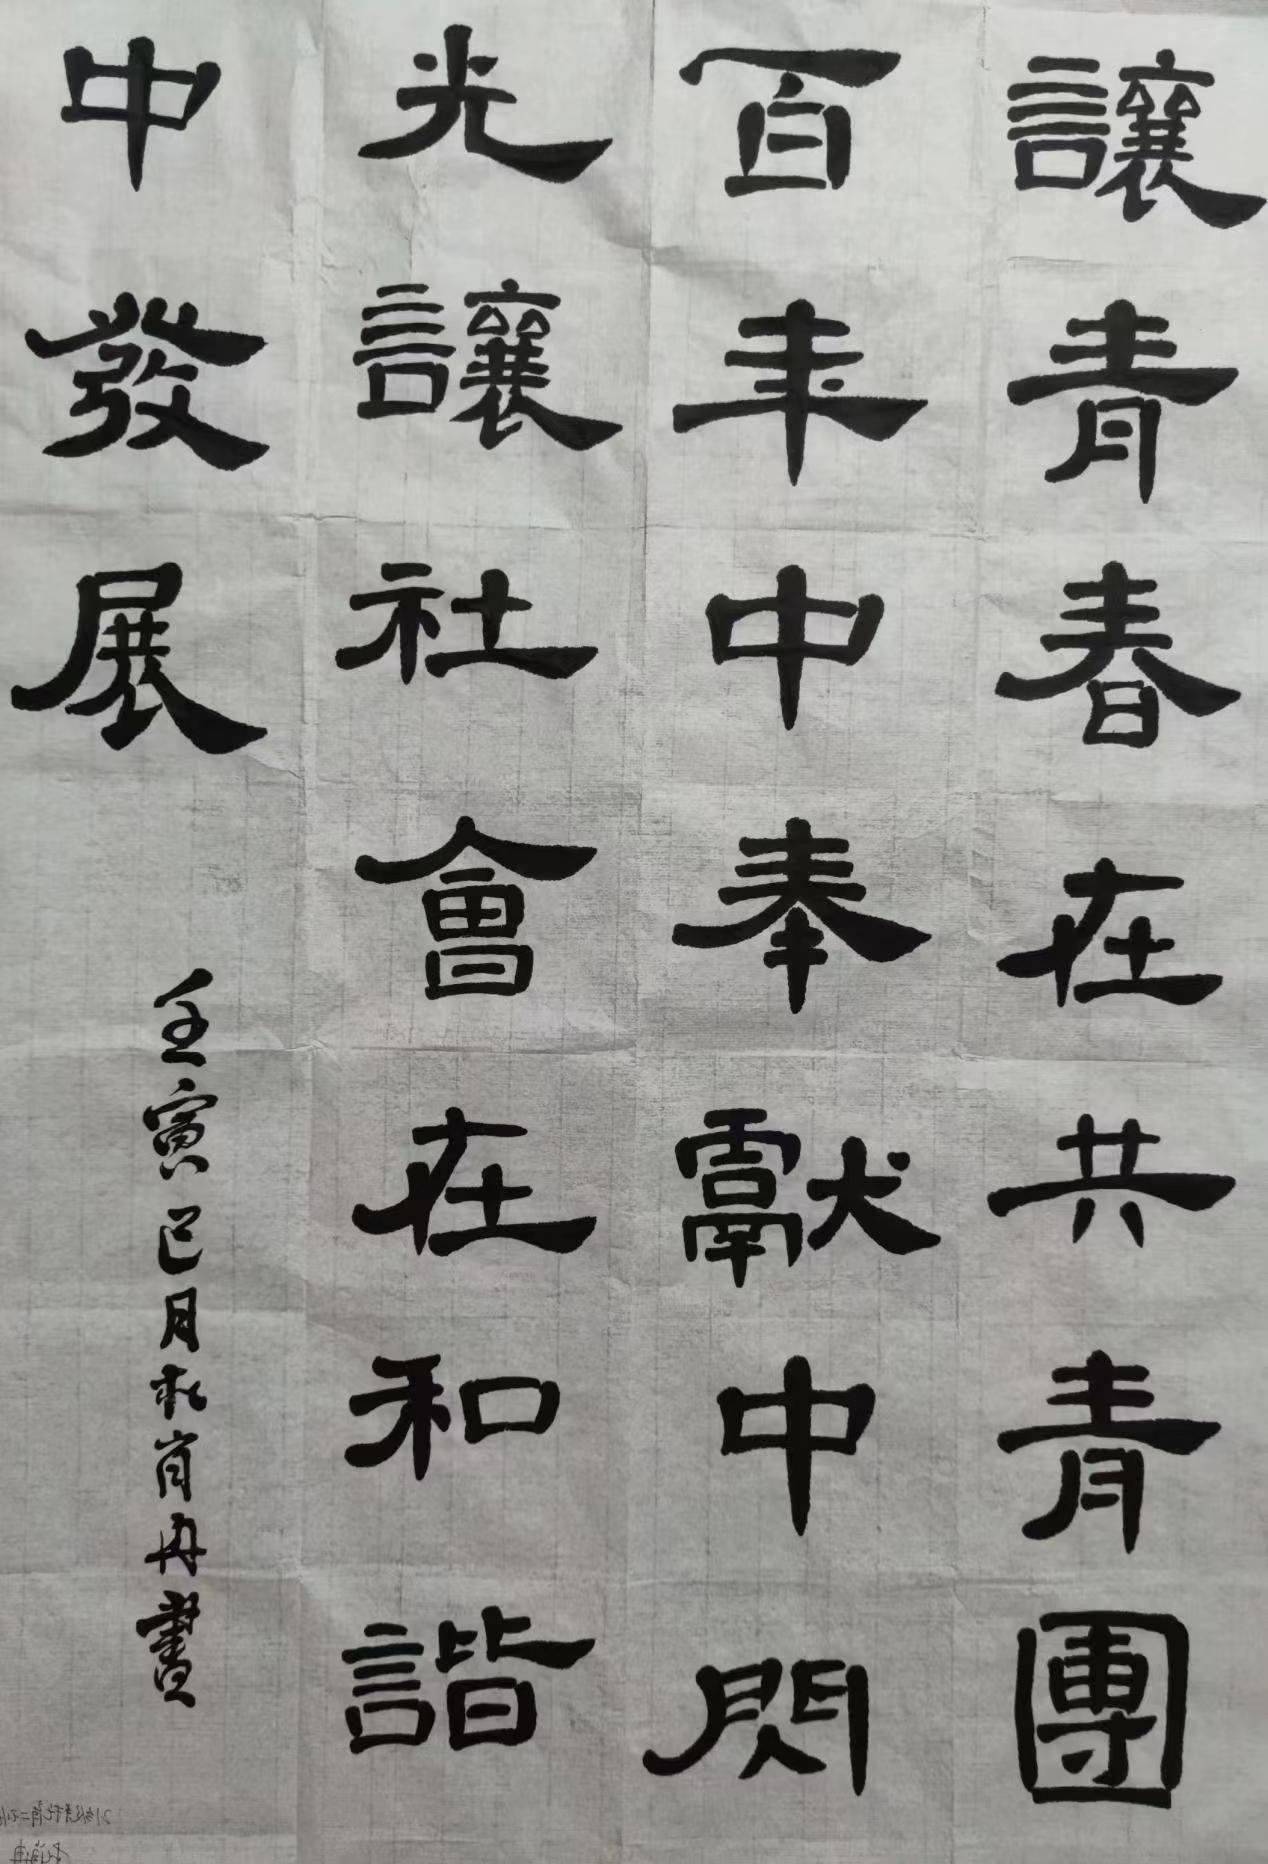 讓青春在共青團
百年中奉獻中閃
光讓社會在和諧
中發展
壬寅巳月孔肖冉書